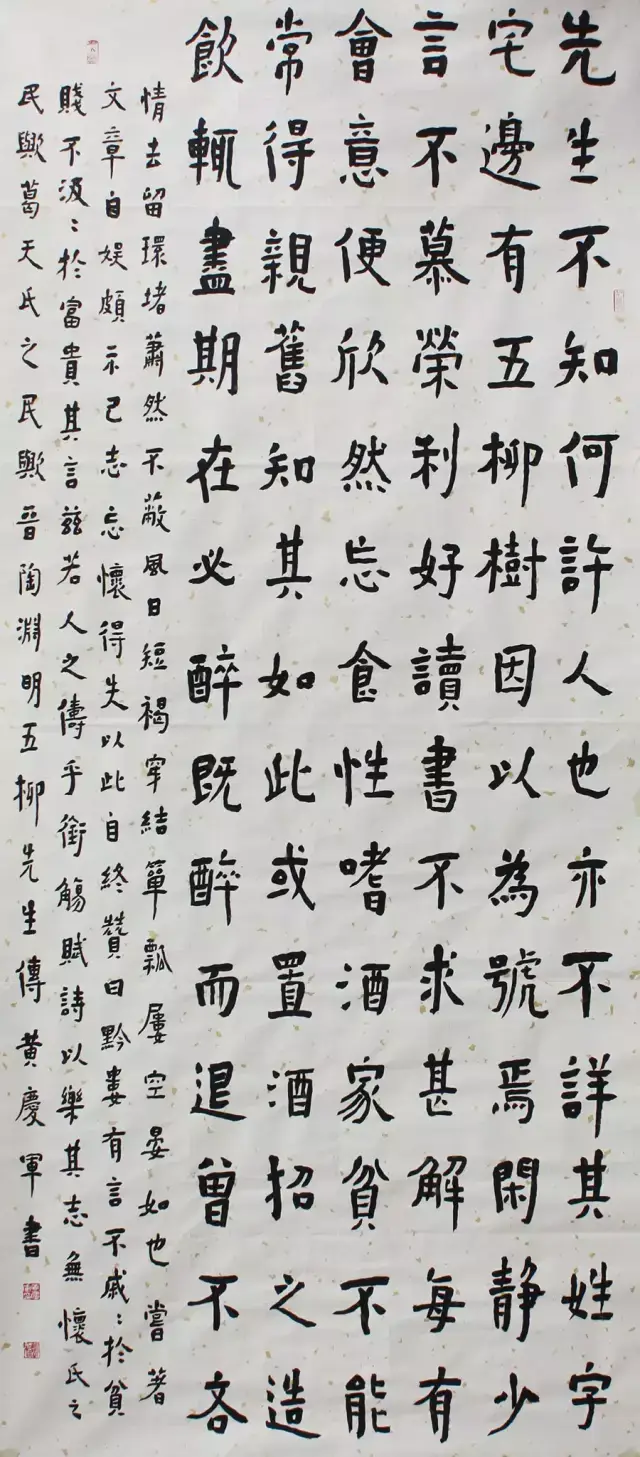 先生不知何許人也亦不詳其姓字
宅邊有五柳樹因以為號焉閑靜少
言不慕榮利好讀書不求甚解每有
會意便欣然忘食性嗜酒家貧不能
常得親舊知其如此或置酒招之造
飲輒盡期在必醉既醉而退曾不吝
情去留環堵蕭然不蔽風日短褐穿結簞瓢屢空晏如也嘗著
文章自娛頗示己志忘懷得失以此自終贊曰黔婁有言不戚〻於貧
賤不汲〻於富貴其言茲若人之儔乎銜觴賦詩以樂其志無懷氏之
民歟葛天氏之民歟晉陶淵明五柳先生傳黃慶軍書